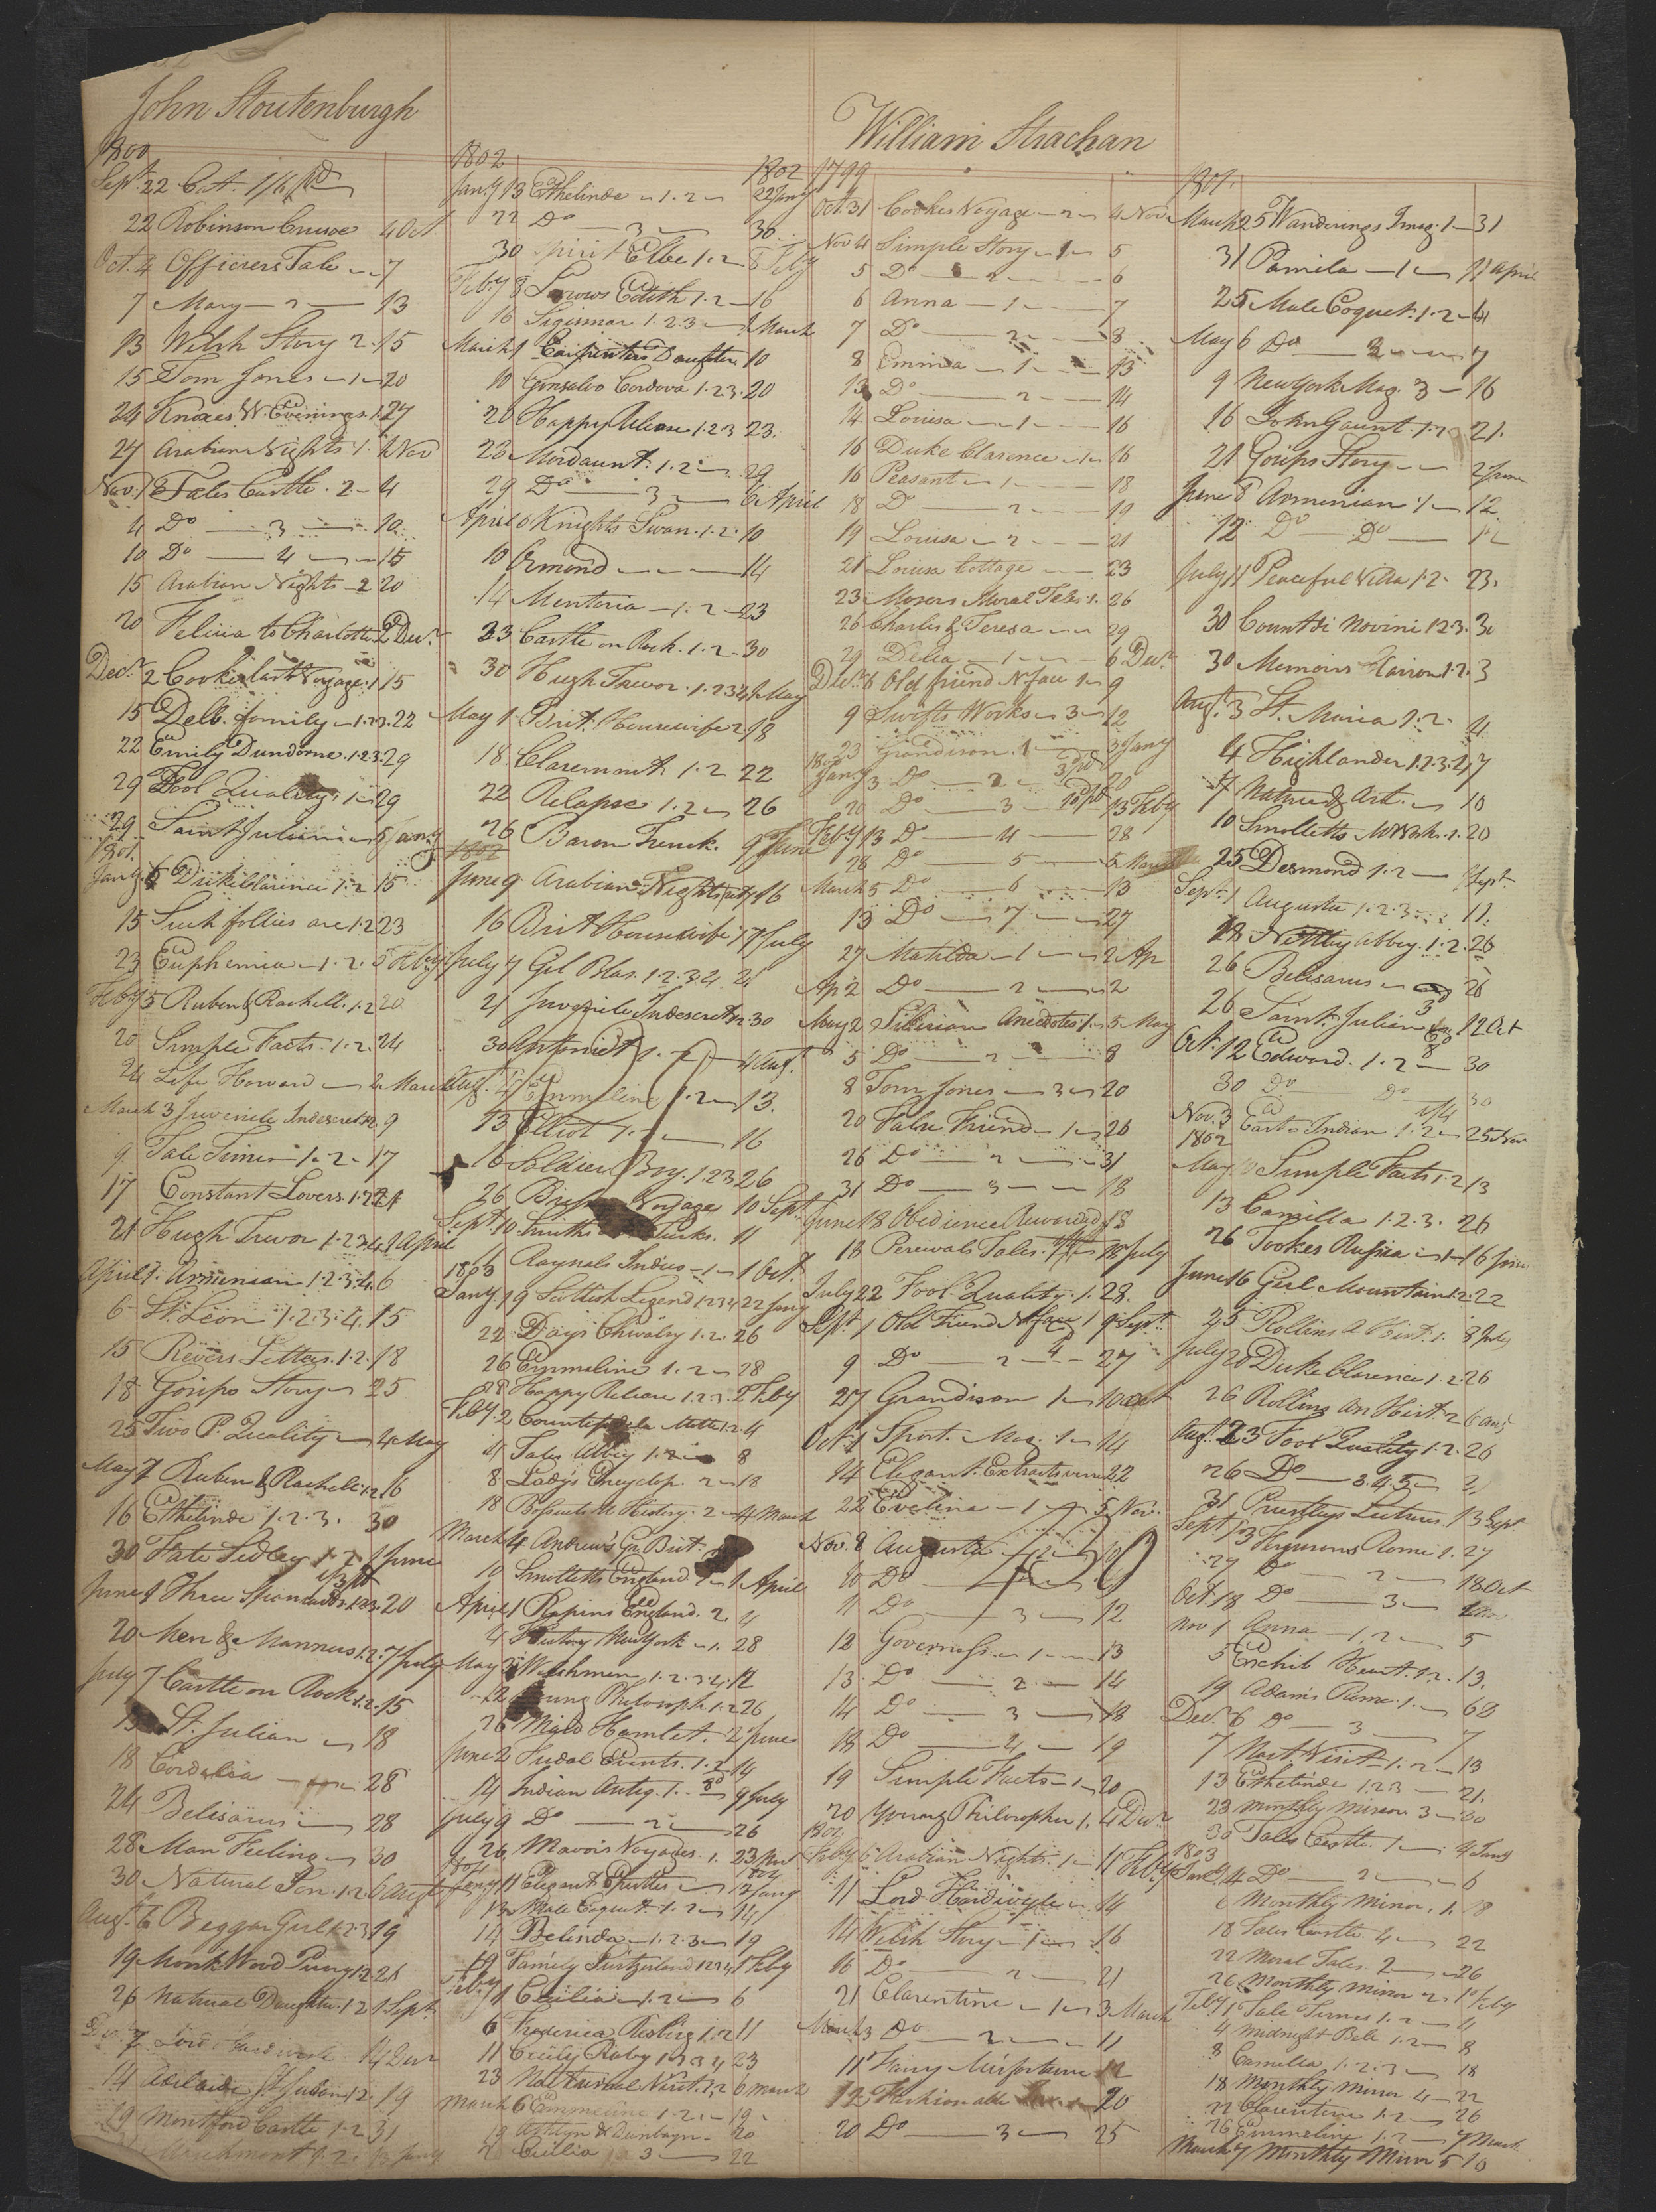 John Stoutenburgh
1800
Sept. 22 C.A. 1/6 Pd
22 Robinson Crusoe 4 Oct
Oct. 4 Officers Tale 7
7 Mary 2 13
13 Welsh Story 2. 15
15 Tom Jones 1 20
24 Knoxes W. Evenings. 1. 27
27 Arabian Nights 1. 1 Nov
Nov. 1 Tales Castle. 2 4
4 Do 3 10
10 Do 4 15
15 Arabian Nights 2 20
20 Felicia to Charlotte 2 Decr
Decr 2 Cookes last Voyage. 1 15
15 Delb. family 1.2.3. 22
22 Emily Dundorne. 1.2.3. 29
29 Fool Quality. 1 29
29 Saint Julian 5 Jany
1801.
Jany. 5 Duke Clarence 1.2 15
15 Such follies are 1.2 23
23 Euphemia 1.2. 5 Feby
Feby 5 Ruben & Rachell. 1.2 20
20 Simple Facts. 1.2. 24
24 Life Howard 2 March
March 3 Juvenile Indescret. 1.2. 9
9 Tale Times 1.2 17
17 Constant Lovers. 1.2 21
21 Hugh Trevor 1.2.3.4. 1 April
April 1. Armenian 1.2.3.4. 6
6 St. Leon 1.2.3.4. 15
15 Rivers Letters. 1.2. 18
18 Gosips Story 25
25 Two P. Quality 4 May
May 7 Ruben & Rachell. 1.2. 16
16 Ethelinde 1.2.3. 30
30 Fate Sedley 1.2 1 June
June 1 Three Spaniards. 1.2.3. 20
20 Men & Manners 1.2. 7 July
July 7 Castle on Rock. 1.2. 15
15 St. Julian 18
18 Cordelia 28
24 Belisarius 28
28 Man Feeling 30
30 Natural Son. 1.2 6 Augt
Augt. 6 Beggar Girl 1.2.3 19
19 Monk Wood Priory 1.2 26
26 Natural Daughter. 1.2 1 Sept.
7 Lord Hardwick 14 Decr
14 Adelaide St Julian 1.2. 19
19 Montford Castle 1.2 31
1802
Jany 13 Ethelinde 1.2 22 Jany
22 Do 3 30
30 Spirit Elbe 1.2 8 Feby
Feby 8 Sorrows Edith 1.2 16
16 Sigismar 1.2.3 1 March
March 1 Carpenters Daughter 10
10 Gonsalvo Cordova 1.2.3. 20
20 Happy Release 1.2.3 23.
23 Mordaunt. 1.2 29
29 Do 3 6 April
April 6 Knights Swan. 1.2. 10
10 Ormond 14
14 Mentoria 1.2 23
23 Castle on Rock. 1.2 30
30 Hugh Trevor. 1.2.3.4 1 May
May 1. Brit. Housewife 2 18
18. Claremont 1.2 22
22 Relapse 1.2 26
26 Baron Trenck. 9 June
1802
June 9 Arabian Nights 16
16 Brit Housewife 1 7 July
July 7 Gil Blas. 1.2.3.4. 21
21 Juvenile Indescret 1.2 30
30 Antoinette 1.2 4 Aug.
Augt. 4 Emmeline 1.2 13.
13 Elliot 1.2 16
16 Soldier Boy. 1.2.3 26
26 Voyage 10 Sept.
Sept. 10 Smiths Turks. 11
11 Raynals Indies 1 1 Oct.
1803
Jany. 19 Scottish Legend 1.2.3.4 22 Jany
22 Days Chivalry 1.2. 26
26 Emmeline 1.2 28
28 Happy Release 1.2.3. 2 Feby
Feby. 2 Countess de la Motte 1.2. 4
4 Tales Abbey 1.2 8
8. Ladys Encyclop. 2 18
18 Bossuets U History. 2 4 March
March 4 Andrews Gr Brit.
10 Smolletts England. 1 April
April 1 Rapins England. 2. 4
4 History New York 1. 28
May Welchman 1.2.3.4. 12
12 Young Philosoph. 1.2 26
26 Maid Hamlet. 2 June
June 2 Feudal Events. 1.2 14
14 Indian Antiq. 1. 9 July
July 9 Do 2 26
26 Mavors Voyages. 1. 23 Nov
1804
Jany 11 Elegant Epistles 13 Jany
13 Male Coquet. 1.2 14
14 Belinda 1.2.3 19
19 Family Switzerland 1.2.3.4 1 Feby
Feby 1 Cecilia 1.2 6
6 Frederica Risberg 1.2 11
11 Cecily Raby 1.2.3.4 23
23 Nocturnal Visit. 1.2 6 March
March 6 Emmeline 1.2. 19
Cecilia 3 22
William Strachan
1799
Oct. 31 Cookes Voyage 2 4 Nov
Nov 4 Simple Story 1 5
5 Do 2 6
6 Anna 1 7
7 Do 2 8
8 Emma 1 13
13 Do 2 14
14 Louisa 1 16
16 Duke Clarence 1 16
16 Peasant 1 18
18 Do 2 19
19 Louisa 2 21
21 Louisa Cottage 23
23 Mosers Moral Tales. 1. 26
26 Charles & Teresa 29
29 Delia 1 6 Decr
Decr 6 Old friend N face 1 9
9 Swifts Works 3 12
23 Grandison. 1 3 Jany
1800
Jany 3 Do 2 20
20 Do 3 13 Feby
Feby 13 Do 4 28
28 Do 5 5 March
March 5 Do 6 13
13 Do 7 27
27 Matilda 1 2 Ap
Ap 2 Do 2 2
May 2 Siberian Anecdotes 1 5 May
5 Do 2 8
8 Tom Jones 3 20
20 False Friend 1 26
26 Do 2 31
31 Do 3 18
June 18 Obedience Rewarded 18
18 Percivals Tales. 18 July
July 22 Fool Quality. 1. 28.
Sept. 1 Old Friend N face 1 9 Sept.
9 Do 2 27
27 Grandison 1 10 Oct
Oct. 1 Sport. Mag. 1 14
14 Elegant Extracts verse 22
22 Evelina 1 5 Nov.
Nov. 8 Augusta 10
10 Do
11 Do 3 12
12 Governess 1 13
13. Do 2 14
14 Do 3 18
18 Do 4 19
19 Simple Facts 1 20
20 Young Philosopher 1. 4 Decr
1801
Feby 6 Arabian Nights. 1 11 Feby
11 Lord Hardwick 14
14 Welsh Story 1 16
16 Do 2 21
21 Clarentine 1 3 March
March 3 Do 2 11
11 Fanny Misfortune 12
12 Fashionable 20
20 Do 3 25
1801.
March 25 Wanderings Imag. 1 31
31 Pamela 1 11 April
25 Male Coquet. 1.2 4
May 6 Do 7
9 New York Mag. 3 16
16 John Gaunt. 1.2 21.
21 Gosips Story 2 June
June 8 Armenian 1 12
12 Do Do
July 11 Peaceful Villa 1.2. 23.
30 Count di Novini 1.2.3. 30
30 Memoirs Harron 1.2. 3
Augt. 3 St. Maria 1.2. 4
4 Highlander 1.2.3. 7
7 Nature & Art. 10
10 Smolletts Works. 1. 20
25 Desmond 1.2 1 Sept.
Sept. 1 Augusta 1.2.3 11.
18 Netley Abbey. 1.2. 26
26 Belisarius 26
26 Saint Julian 12 Oct
Oct. 12 Edward. 1.2 30
30 Do Do 30
Nov. 3 East Indian 1.2 25 Nov
1802
May 10 Simple Facts 1.2 13
13 Camilla 1.2.3. 26
26 Tookes Russia 1 16 June
June 16 Girl Mountain 1.2. 22
25 Rollins A Hist. 1. 8 July
July 20 Duke Clarence 1.2. 26
26 Rollins An Hist. 2 6 Aug
Augt. 23 Fool Quality 1.2. 26
26 Do 3.4.5
31 Priestleys Lectures. 13 Sept.
Sept. 13 Fergusons Rome 1. 27
27 Do 2 18 Oct
Oct. 18 Do 3 1 Nov
Nov 1 Anna 1.2 5
5 Exhib Heart. 1.2. 13.
19 Adams Rome. 1 6 D
Decr. 6 Do 3 7
7 Noct Visit 1.2 13
13 Ethelinde 1.2.3 21.
23 Monthly Mirror 3 30
30 Tales Castle. 1 4 Jany
1803
Jany 4 Do 2 6
6 Monthly Mirror. 1. 18
18 Tales Castle. 4 22
22 Moral Tales. 2 26
26 Monthly Mirror 2 1 Feby
Feby 1 Tale Times 1.2 4
4 Midnight Bell 1.2 8
8 Camilla 1.2.3 18
18 Monthly Mirror 4 22
22 Clarentine 1.2 26
26 Emmeline 1.2 7 March
March 7 Monthly Mirror 5 10